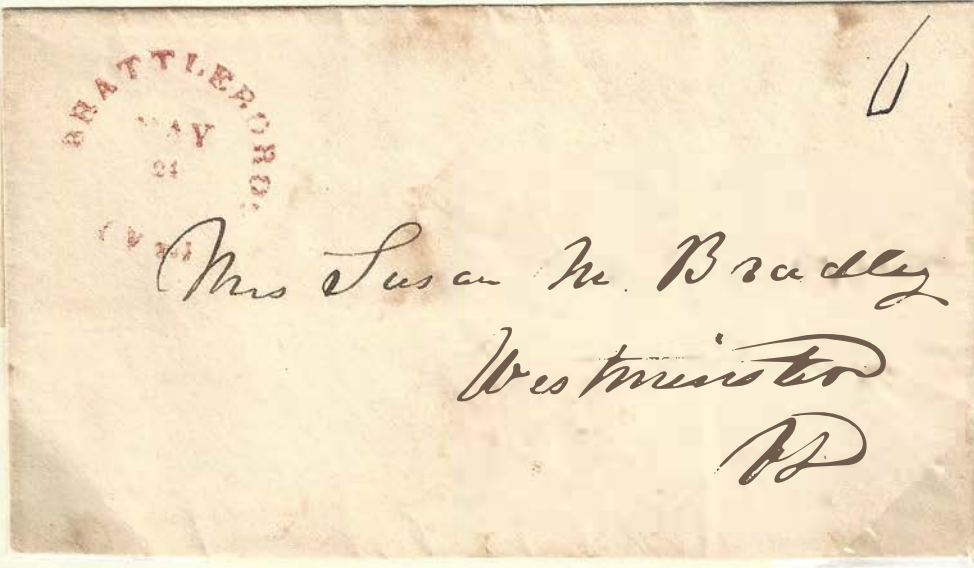 BRATTLEBORO.
MAY
24
6
Mrs Susan M. Bradley
Westminster
Vt